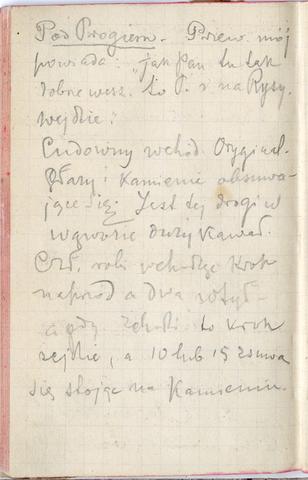 Pod Progiem. Przew. mój
powiada: "jak Pan tu tak
dobrze wesz. to P. i na Rysy
wejdzie."
Cudowny wchód. Oryginal.
głazy i kamienie obsuwa-
jące się. Jest tej drogi w
wąwozie duży kawał.
Czł. robi wchodząc krok
naprzód a dwa wtył
a gdy schodzi to krok
zejdzie, a 10 lub 15 zsuwa
się stojąc na kamieniu.